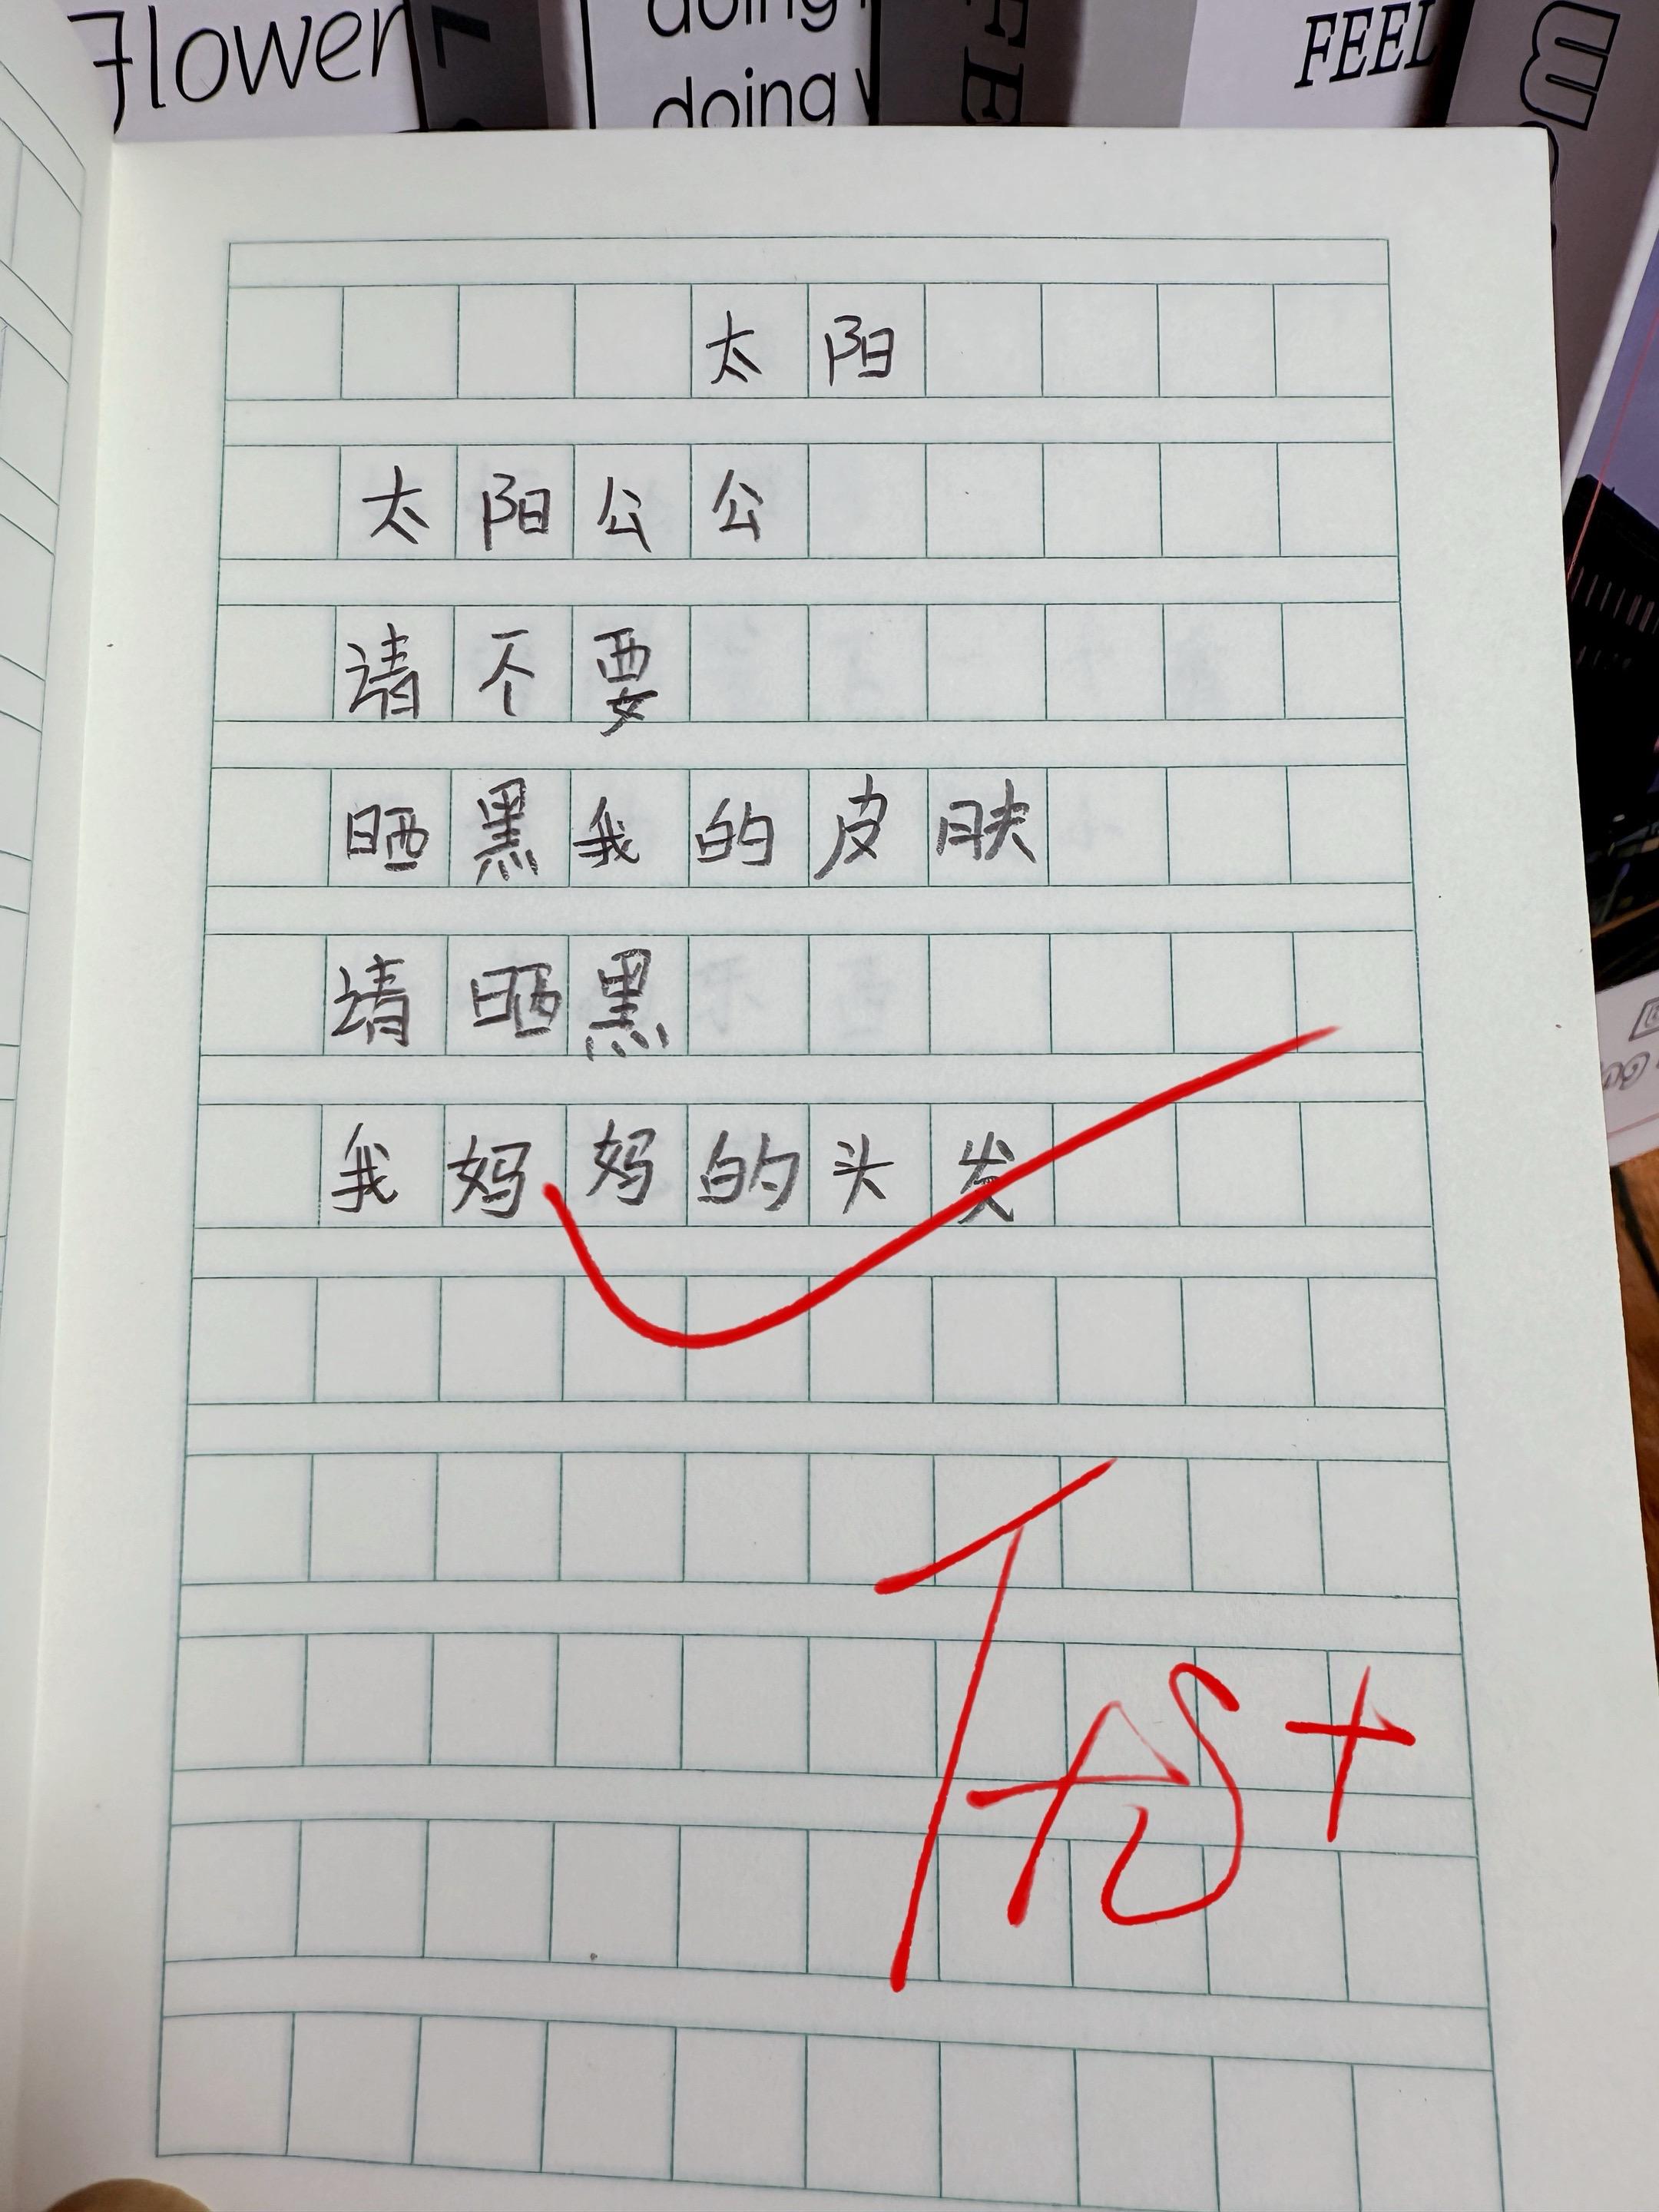 Flower
doing
doing
FE
FEEL
太阳
太阳公公
请不要
晒黑我的皮肤
请晒黑
我妈妈的头发